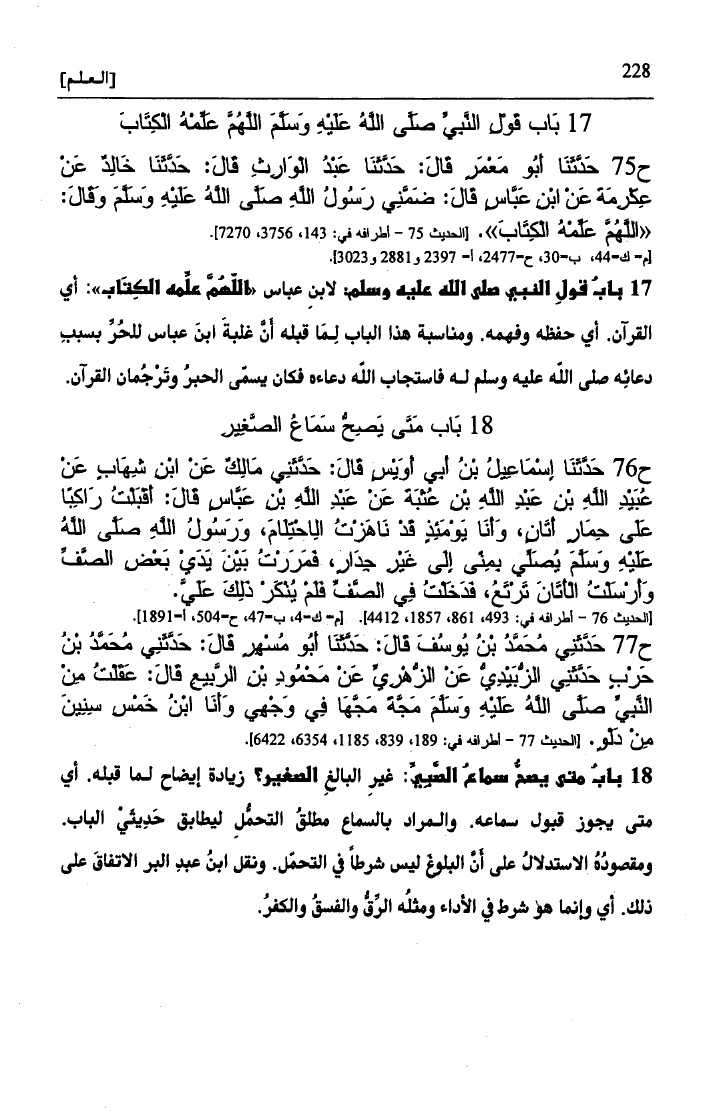 228
[العلم]
17 بَاب قَوْلِ النَّبِيِّ صَلَّى اللَّهُ عَلَيْهِ وَسَلَّمَ اللَّهُمَّ عَلِّمْهُ الْكِتَابَ
ح75 حَدَّثَنَا أَبُو مَعْمَرٍ قَالَ: حَدَّثَنَا عَبْدُ الْوَارِثِ قَالَ: حَدَّثَنَا خَالِدٌ عَنْ
عِكْرِمَةَ عَنْ ابْنِ عَبَّاسٍ قَالَ: ضَمَّنِي رَسُولُ اللَّهِ صَلَّى اللَّهُ عَلَيْهِ وَسَلَّمَ وَقَالَ:
«اللَّهُمَّ عَلِّمْهُ الْكِتَابَ». [الحديث 75 - أطرافه في: 143، 3756، 7270].
[م- ك-44، ب-30، ح-2477، أ- 2397 و2881 و3023].
17 بابُ قولِ النبي صلى الله عليه وسلم: لابن عباس «اللَّهُمَّ علِّمه الكِتابَ»: أي
القرآن. أي حفظه وفهمه. ومناسبة هذا الباب لِمَا قبله أنَّ غلبةَ ابنَ عباس للحُرِّ بسبب
دعائِه صلى اللّه عليه وسلم لـه فاستجاب اللّه دعاءه فكان يسمّى الحبرُ وتَرْجُمان القرآن.
18 بَاب مَتَى يَصِحُّ سَمَاعُ الصَّغِيرِ
ح76 حَدَّثَنَا إِسْمَاعِيلُ بْنُ أَبِي أُوَيْسٍ قَالَ: حَدَّثَنِي مَالِكٌ عَنْ ابْنِ شِهَابٍ عَنْ
عُبَيْدِ اللَّهِ بْنِ عَبْدِ اللَّهِ بْنِ عُتْبَةَ عَنْ عَبْدِ اللَّهِ بْنِ عَبَّاسٍ قَالَ: أَقْبَلْتُ رَاكِبًا
عَلَى حِمَارٍ أَتَانٍ، وَأَنَا يَوْمَئِذٍ قَدْ نَاهَزْتُ الِاحْتِلَامَ، وَرَسُولُ اللَّهِ صَلَّى اللَّهُ
عَلَيْهِ وَسَلَّمَ يُصَلِّي بِمِنًى إِلَى غَيْرِ جِدَارٍ، فَمَرَرْتُ بَيْنَ يَدَيْ بَعْضِ الصَّفِّ
وَأَرْسَلْتُ الْأَتَانَ تَرْتَعُ، فَدَخَلْتُ فِي الصَّفِّ فَلَمْ يُنْكَرْ ذَلِكَ عَلَيَّ.
[الحديث 76 - أطرافه في: 493، 861، 1857، 4412]. [م- ك-4، ب-47، ح-504، أ-1891].
ح77 حَدَّثَنِي مُحَمَّدُ بْنُ يُوسُفَ قَالَ: حَدَّثَنَا أَبُو مُسْهِرٍ قَالَ: حَدَّثَنِي مُحَمَّدُ بْنُ
حَرْبٍ حَدَّثَنِي الزُّبَيْدِيُّ عَنْ الزُّهْرِيِّ عَنْ مَحْمُودِ بْنِ الرَّبِيعِ قَالَ: عَقَلْتُ مِنْ
النَّبِيِّ صَلَّى اللَّهُ عَلَيْهِ وَسَلَّمَ مَجَّةً مَجَّهَا فِي وَجْهِي وَأَنَا ابْنُ خَمْسِ سِنِينَ
مِنْ دَلْوٍ. [الحديث 77 - أطرافه في: 189، 839، 1185، 6354، 6422].
18 بابُ متى يصحُّ سماعُ الصَّبِيِّ: غير البالغِ الصغير؟ زيادة إيضاح لما قبله. أي
متى يجوز قبول سماعه. والمراد بالسماع مطلقُ التحمُّل ليطابق حَدِيثَيْ الباب.
ومقصودُهُ الاستدلالُ على أنَّ البلوغَ ليس شرطاً في التحمّل. ونقل ابنُ عبدِ البر الاتفاقَ على
ذلك. أي وإنما هوَ شرط في الأداء ومثلُه الرِّقُّ والفسقُ والكفرُ.